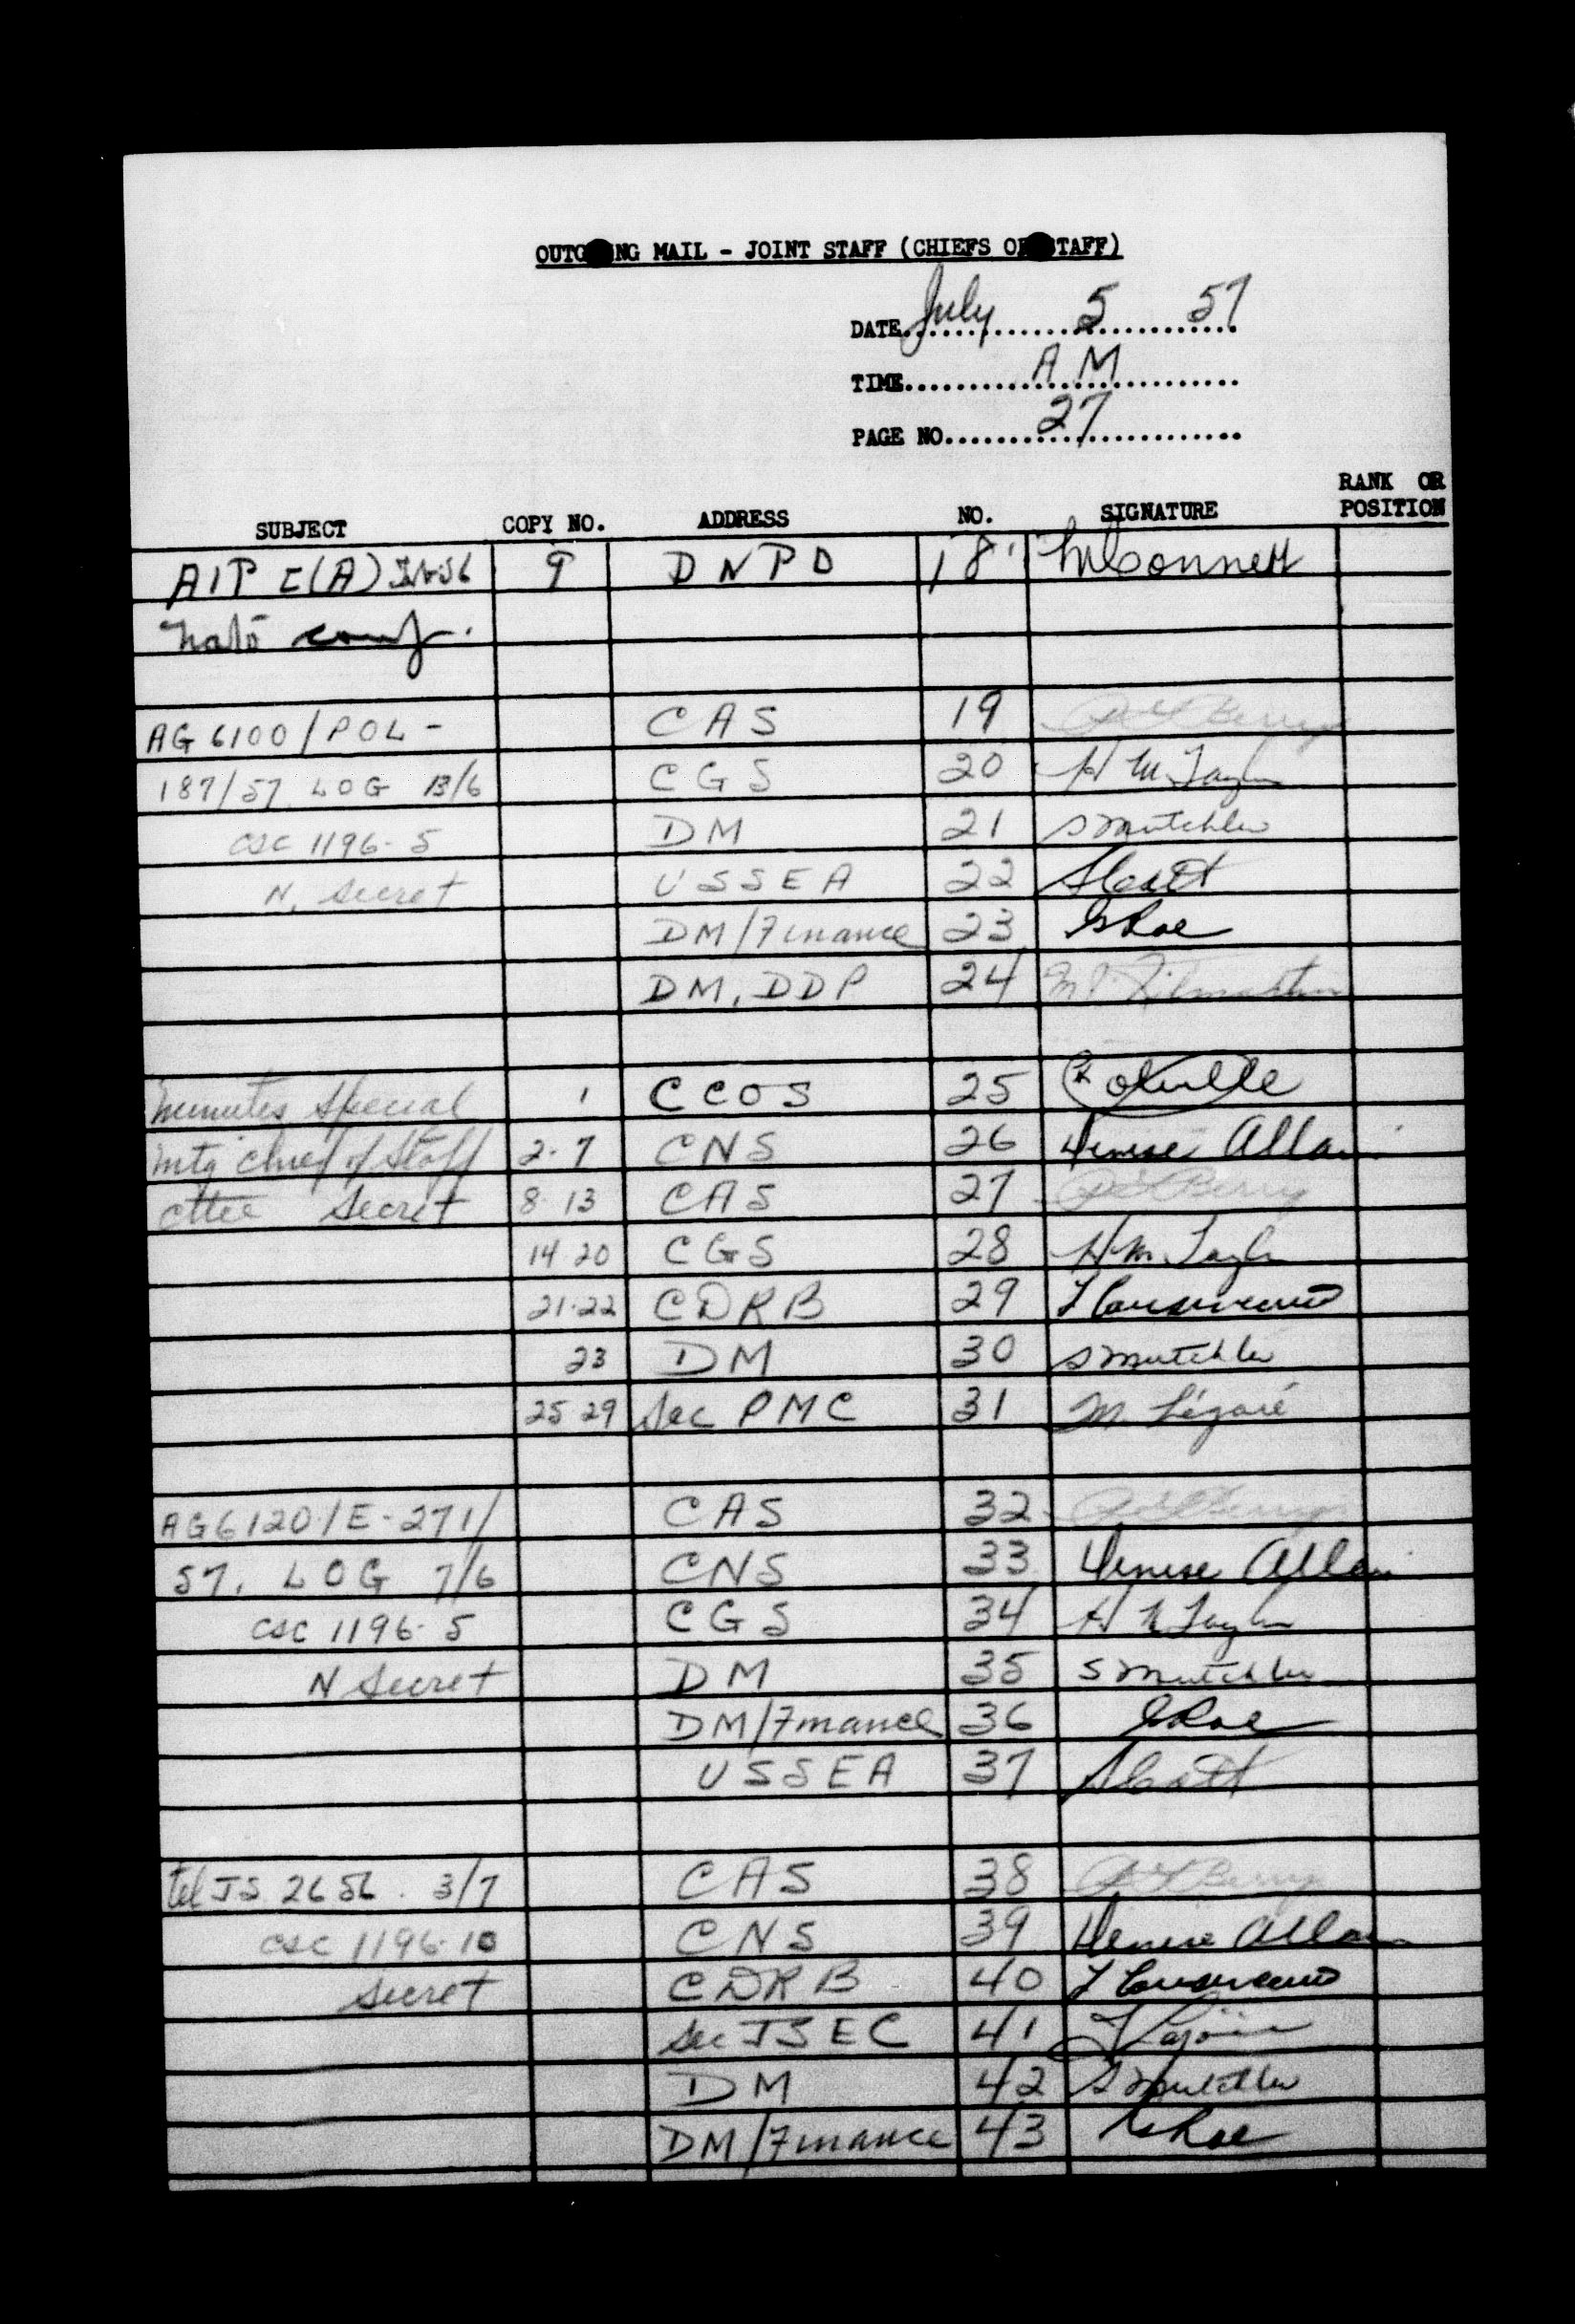 OUTGOING MAIL - JOINT STAFF (CHIEFS OF STAFF)
DATE July 5 57
TIME A M
PAGE NO. 27
SUBJECT COPY NO. ADDRESS NO. SIGNATURE RANK OR POSITION
AIP E(A) 9 DNPD 18 McConnell
Nato conf.
AG 6100/POL - CAS 19 Berry
187/57 LOG 13/6 CGS 20 H M. Taylor
CSC 1196-5 DM 21 S Mutchler
N. Secret USSEA 22 Scott
DM/Finance 23 GRoe
DM, DDP 24
Minutes Special 1 CCOS 25
Mtg Chief of Staff 2-7 CNS 26 Denise Allain
Cttee Secret 8-13 CAS 27 Berry
14-20 CGS 28 H M. Taylor
21-22 CDRB 29
23 DM 30 S Mutchler
25 29 Sec PMC 31 M. Légaré
AG6120/E-271/ CAS 32 Berry
57. LOG 7/6 CNS 33 Denise Allain
CSC 1196-5 CGS 34 H M Taylor
N Secret DM 35 S Mutchler
DM/Finance 36 GRoe
USSEA 37 Scott
tel JS 2656. 3/7 CAS 38 Berry
CSC 1196-10 CNS 39 Denise Allain
Secret CDRB 40
Sec JSEC 41
DM 42 S Mutchler
DM/Finance 43 GRoe